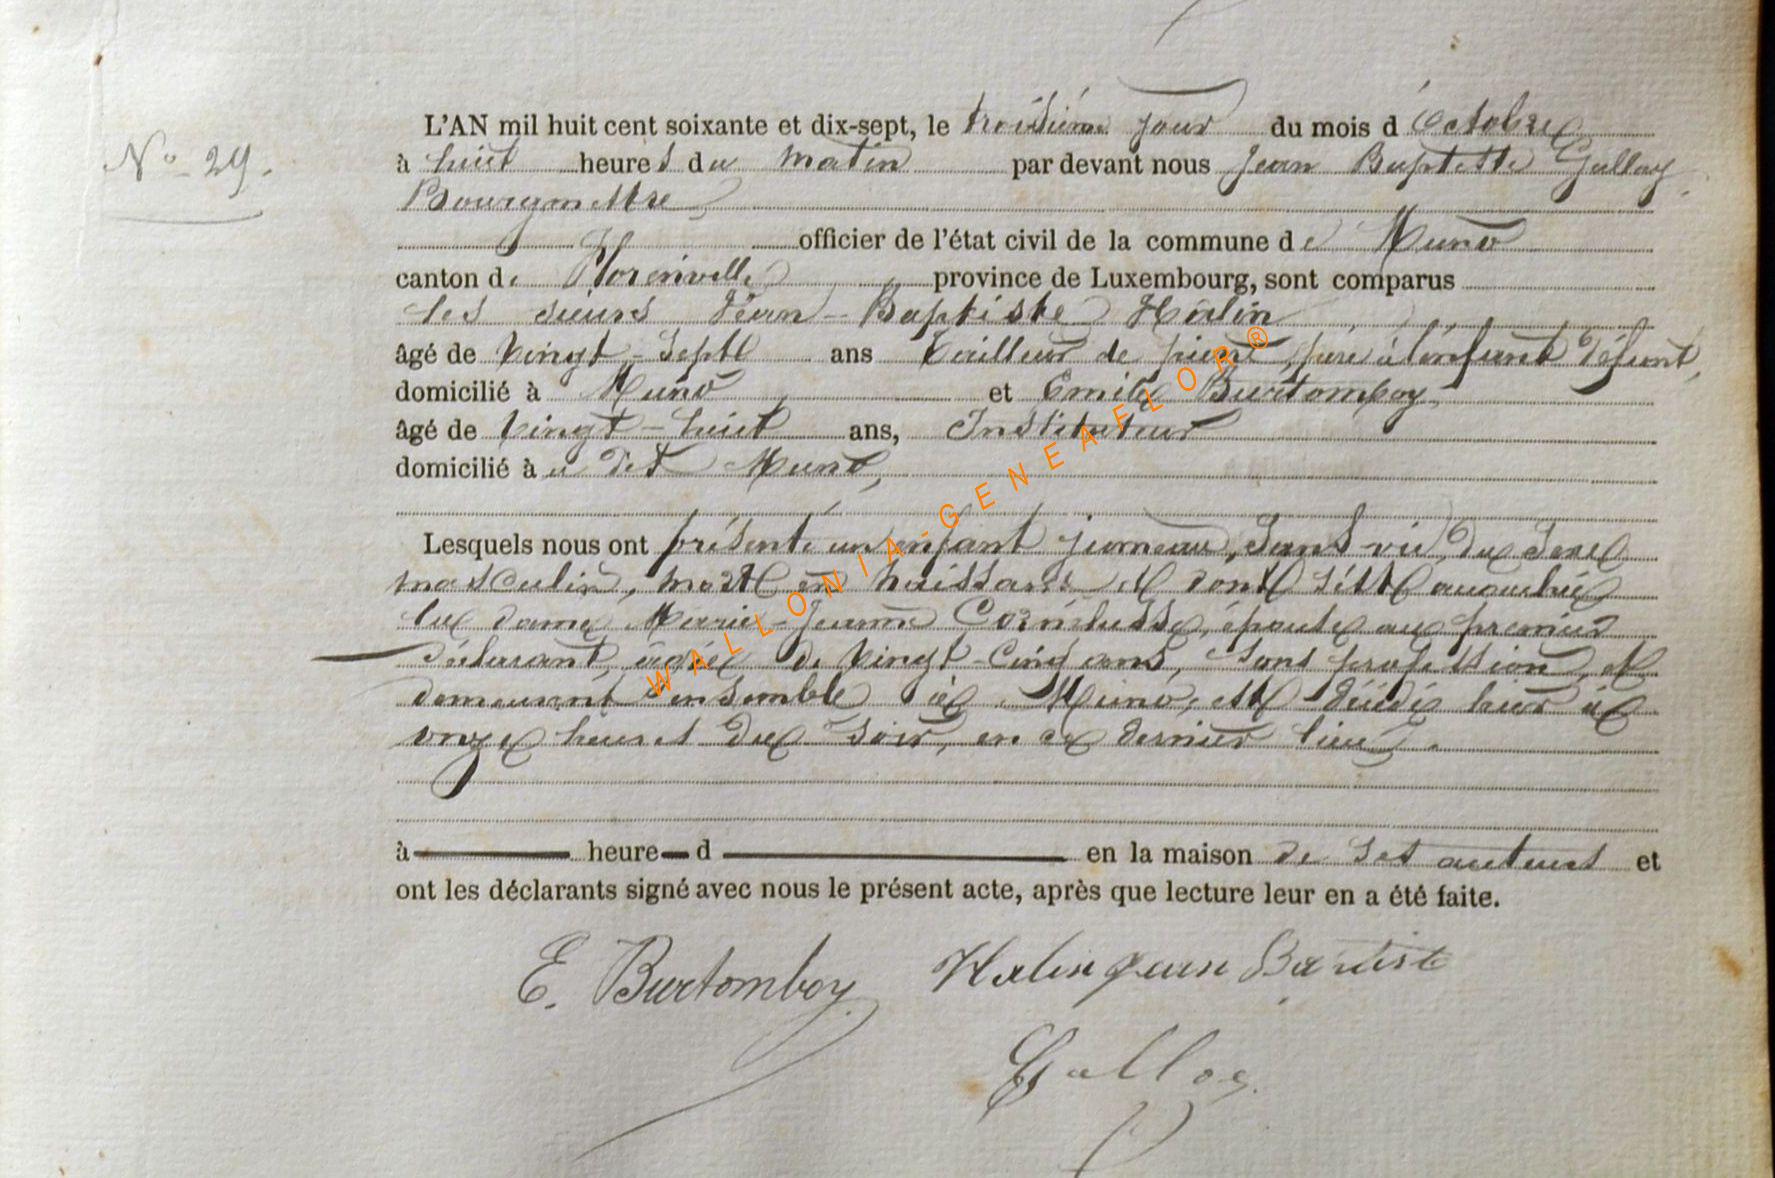 L'AN mil huit cent soixante et dix-sept, le troisième jour du mois d'Octobre
N° 29.
à huit heures du matin par devant nous Jean Baptiste Gallay
Bourgmestre
officier de l'état civil de la commune de Muno
canton de Florenville province de Luxembourg, sont comparus
les sieurs Jean-Baptiste Halin
âgé de vingt-sept ans tailleur de pierre, père à l'enfant défunt,
domicilié à Muno et Emile Burtomboy,
âgé de vingt-huit ans, Instituteur
domicilié à dit Muno,
Lesquels nous ont présenté un enfant jumeau, sans vie, du sexe
masculin, mort en naissant et dont s'est accouchée
la dame Marie-Jeanne Cornélusse, épouse au premier
déclarant, âgée de vingt-cinq ans, sans profession, et
demeurant ensemble à Muno, est décédé hier à
onze heures du soir, en ce dernier lieu.
à heure d en la maison de ses auteurs et
ont les déclarants signé avec nous le présent acte, après que lecture leur en a été faite.
E. Burtomboy Halin Jean Baptiste
Gallay
WALLONIA-GENEAFLOR®